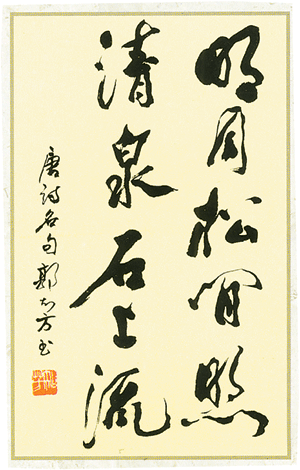 明月松间照
清泉石上流
唐诗名句 郭方书